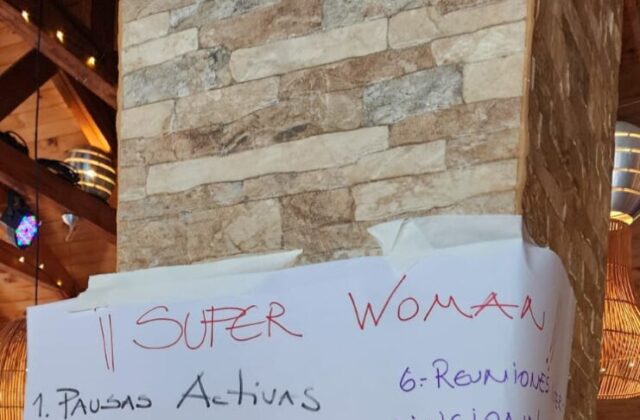 ¡¡ SUPER WOMAN !
1. PAUSAS ACTIVAS
6.- REUNIONES